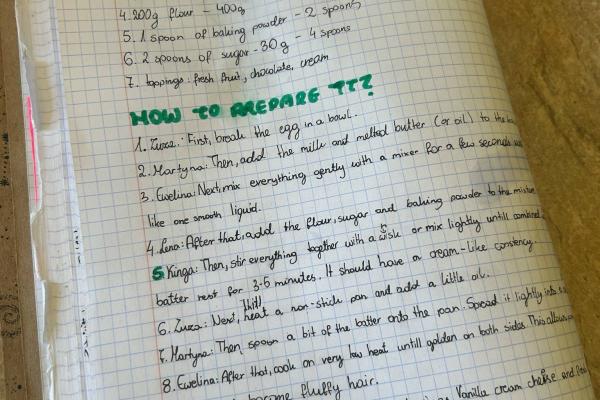 4. 200g flour - 400g
5. 1 spoon of baking powder - 2 spoons
6. 2 spoons of sugar - 30g - 4 spoons
7. toppings: fresh fruit, chocolate, cream
HOW TO PREPARE IT?
1. Zuza: First, break the egg in a bowl.
2. Martyna: Then, add the milk and melted butter (or oil) to the
3. Ewelina: Next, mix everything gently with a mixer for a few seconds
like one smooth liquid.
4. Lena: After that, add the flour, sugar and baking powder to the mixture
5 Kinga: Then, stir everything together with a wisk or mix lightly untill combined.
batter rest for 3-5 minutes. It should have a cream-like constency.
6. Zuza: Next, heat a non-stick pan and add a little oil.
7. Martyna: Then, spoon a bit of the batter onto the pan. Spread it lightly into
8. Ewelina: After that, cook on very low heat untill golden on both sides. This allows
become fluffy hair.
Vanilla cream cheese and